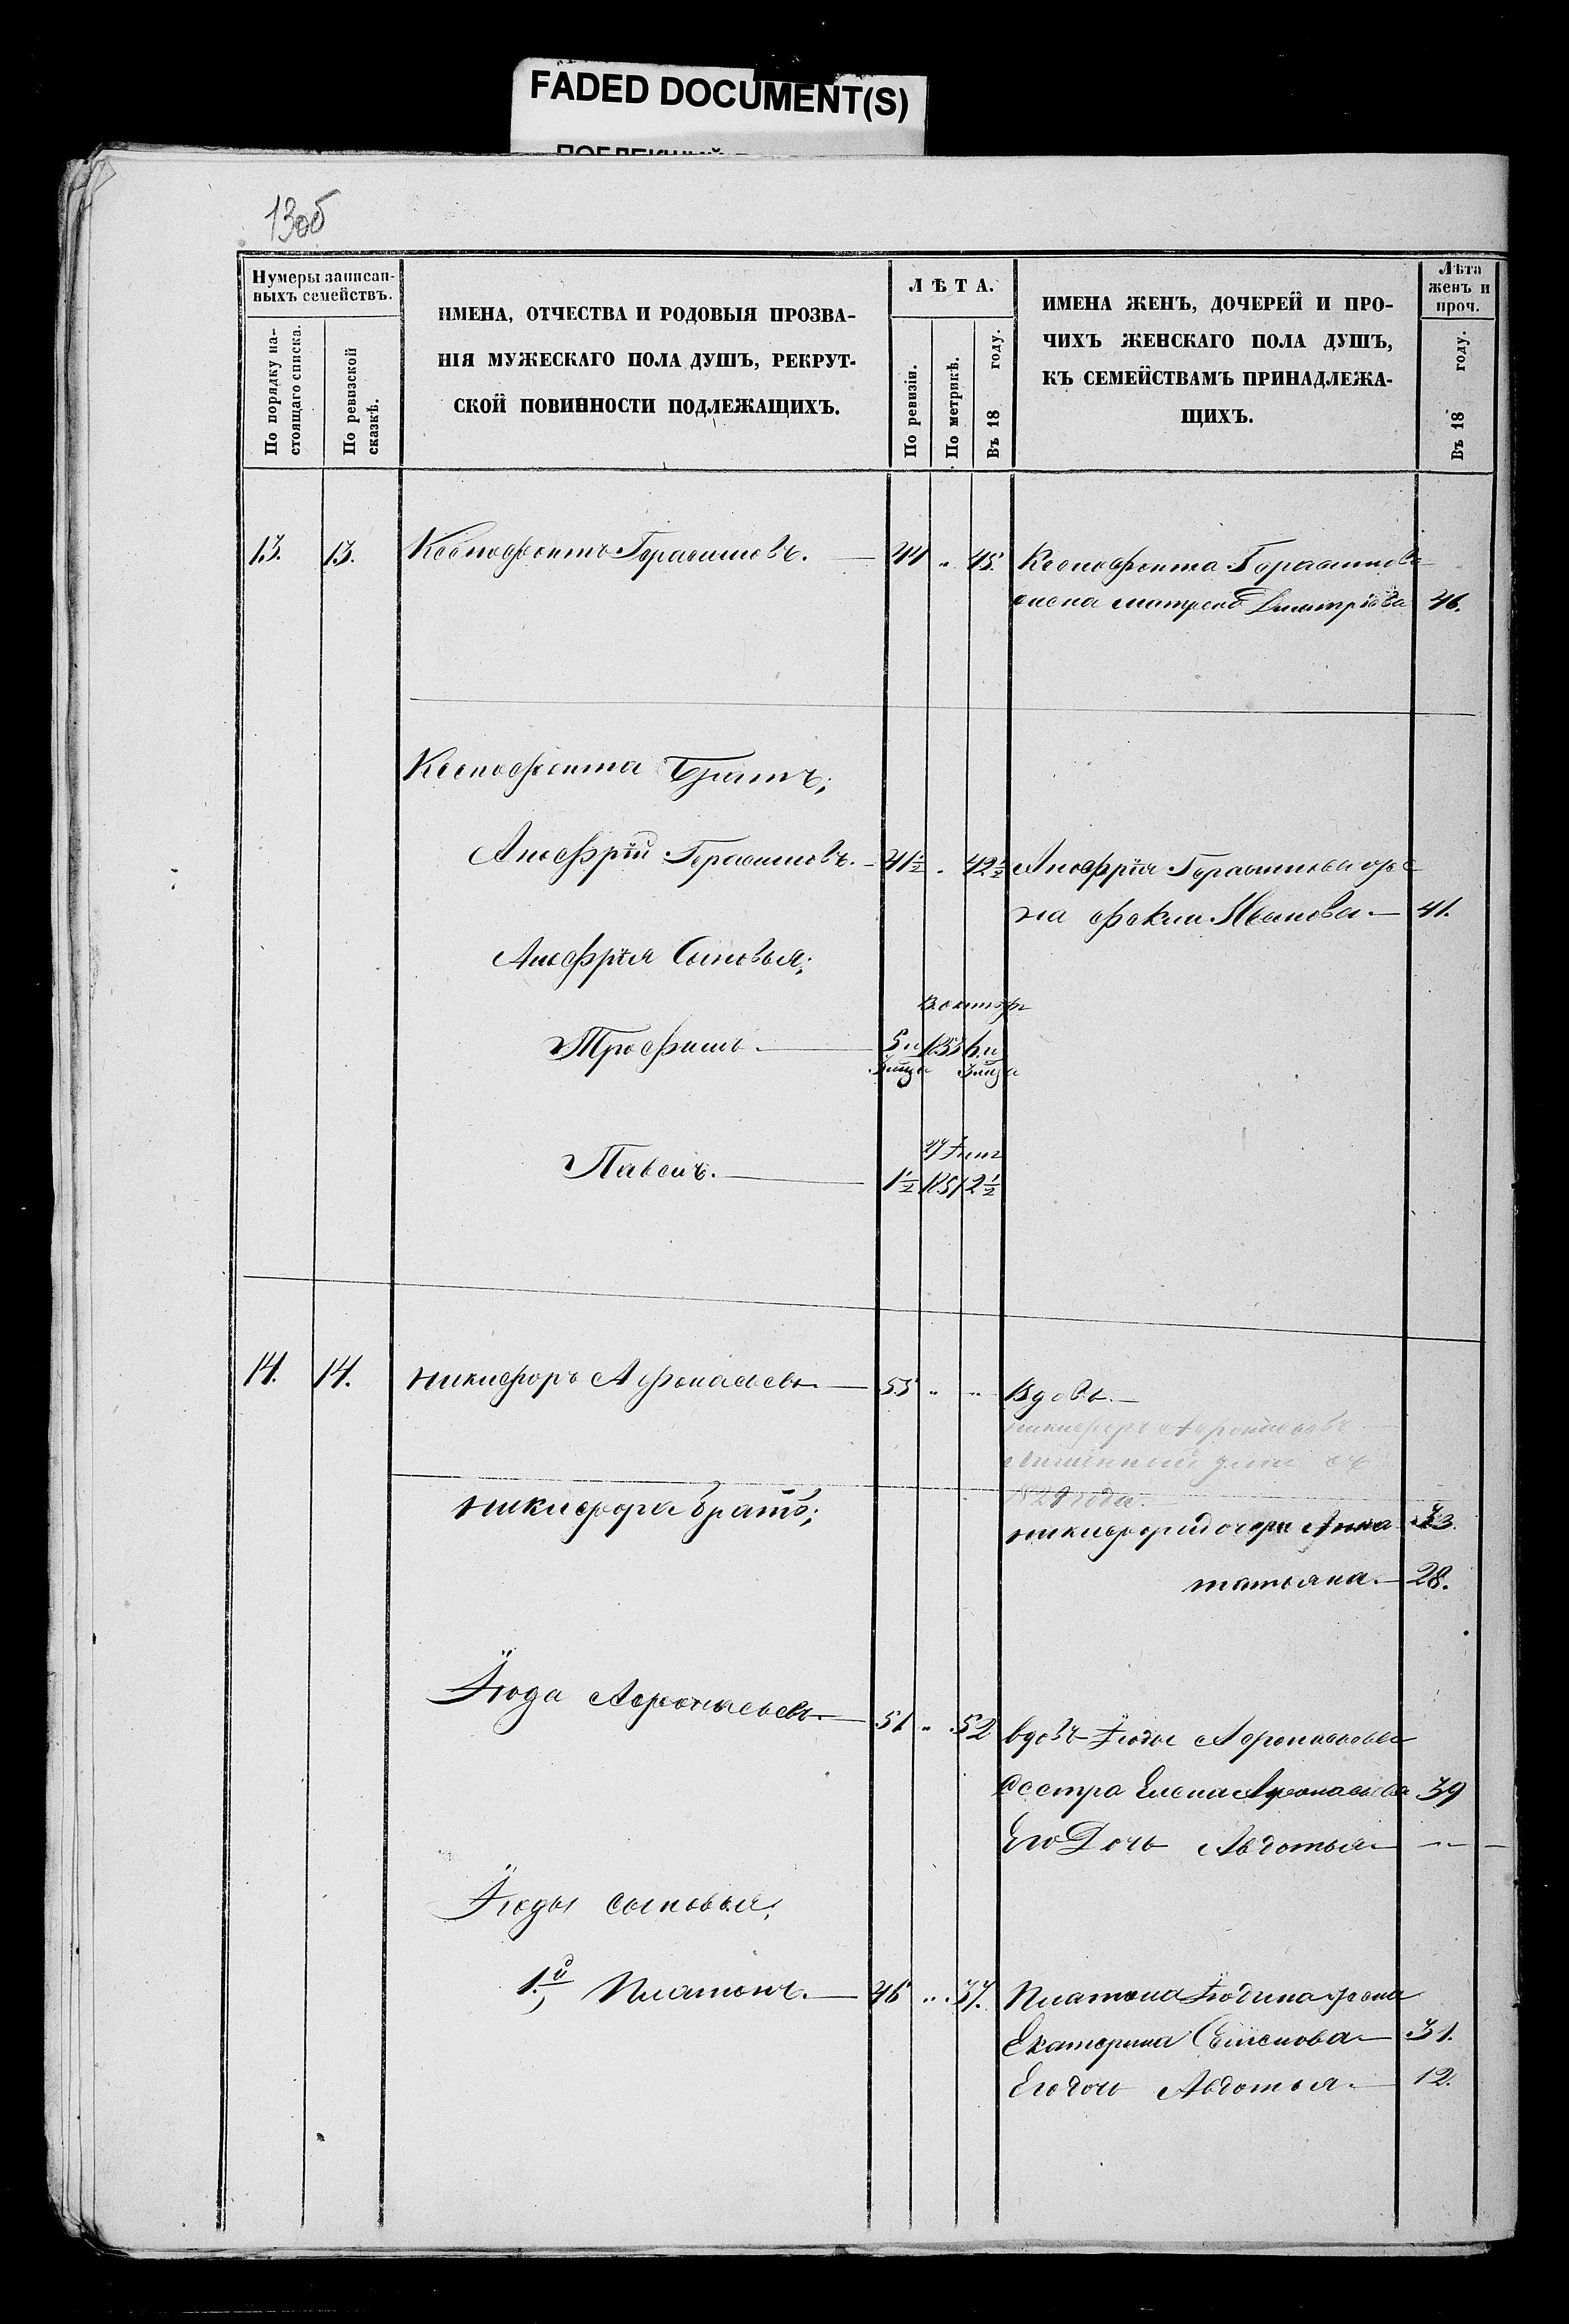 FADED DOCUMENT(S)
13об
Нумеры записан-
ныхъ семействъ.
По порядку на-
стоящаго списка.
По ревизской
сказкѣ.
ИМЕНА, ОТЧЕСТВА И РОДОВЫЯ ПРОЗВА-
НІЯ МУЖЕСКАГО ПОЛА ДУШЪ, РЕКРУТ-
СКОЙ ПОВИННОСТИ ПОДЛЕЖАЩИХЪ.
ЛѢТА.
По ревизіи.
По метрикѣ.
Въ 18 году.
ИМЕНА ЖЕНЪ, ДОЧЕРЕЙ И ПРО-
ЧИХЪ ЖЕНСКАГО ПОЛА ДУШЪ,
КЪ СЕМЕЙСТВАМЪ ПРИНАДЛЕЖА-
ЩИХЪ.
Лѣта
женъ и
проч.
Въ 18 году.
13. 13. Ксенофонтъ Герасимовъ. — 44 „ 45. Ксенофонта Герасимова
жена матрена Дмитріева 46.
Ксенофонта Братъ;
Анофрій Герасимовъ. — 41½ „ 42½ Анофрія Герасимова же
на фекла Иванова. — 41.
Анофрія Сыновья;
Трофимъ. —
Павелъ. — 1½ 1851 2½
14. 14. никифоръ Афонасьевъ — 53 „ „ Вдовъ. —
никифоръ Афонасьевъ
никифора братъ; никифора дочери Анна 33.
татьяна. — 28.
Іюда Афонасьевъ — 51 „ 52 вдовъ Іюды Афонасьева
сестра Елена Афонасьева 39
Его Дочь Авдотья — „ —
Іюды сыновья;
1й Платонъ. — 36 „ 37. Платона Іюдина жена
Екатерина Семенова — 31.
Его дочь Авдотья. — 12.